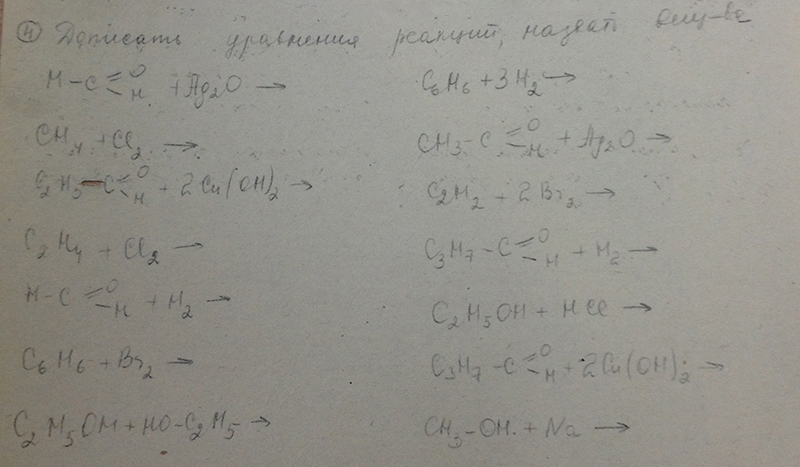 ④ Дописать уравнения реакций, назвать вещ-ва
H-C=O-H + Ag2O →
CH4 + Cl2 →
C2H5-C=O-H + 2Cu(OH)2 →
C2H4 + Cl2 →
H-C=O-H + H2 →
C6H6 + Br2 →
C2H5OH + HO-C2H5 →
C6H6 + 3H2 →
CH3-C=O-H + Ag2O →
C2H2 + 2Br2 →
C3H7-C=O-H + H2 →
C2H5OH + HCl →
C3H7-C=O-H + 2Cu(OH)2 →
CH3-OH + Na →